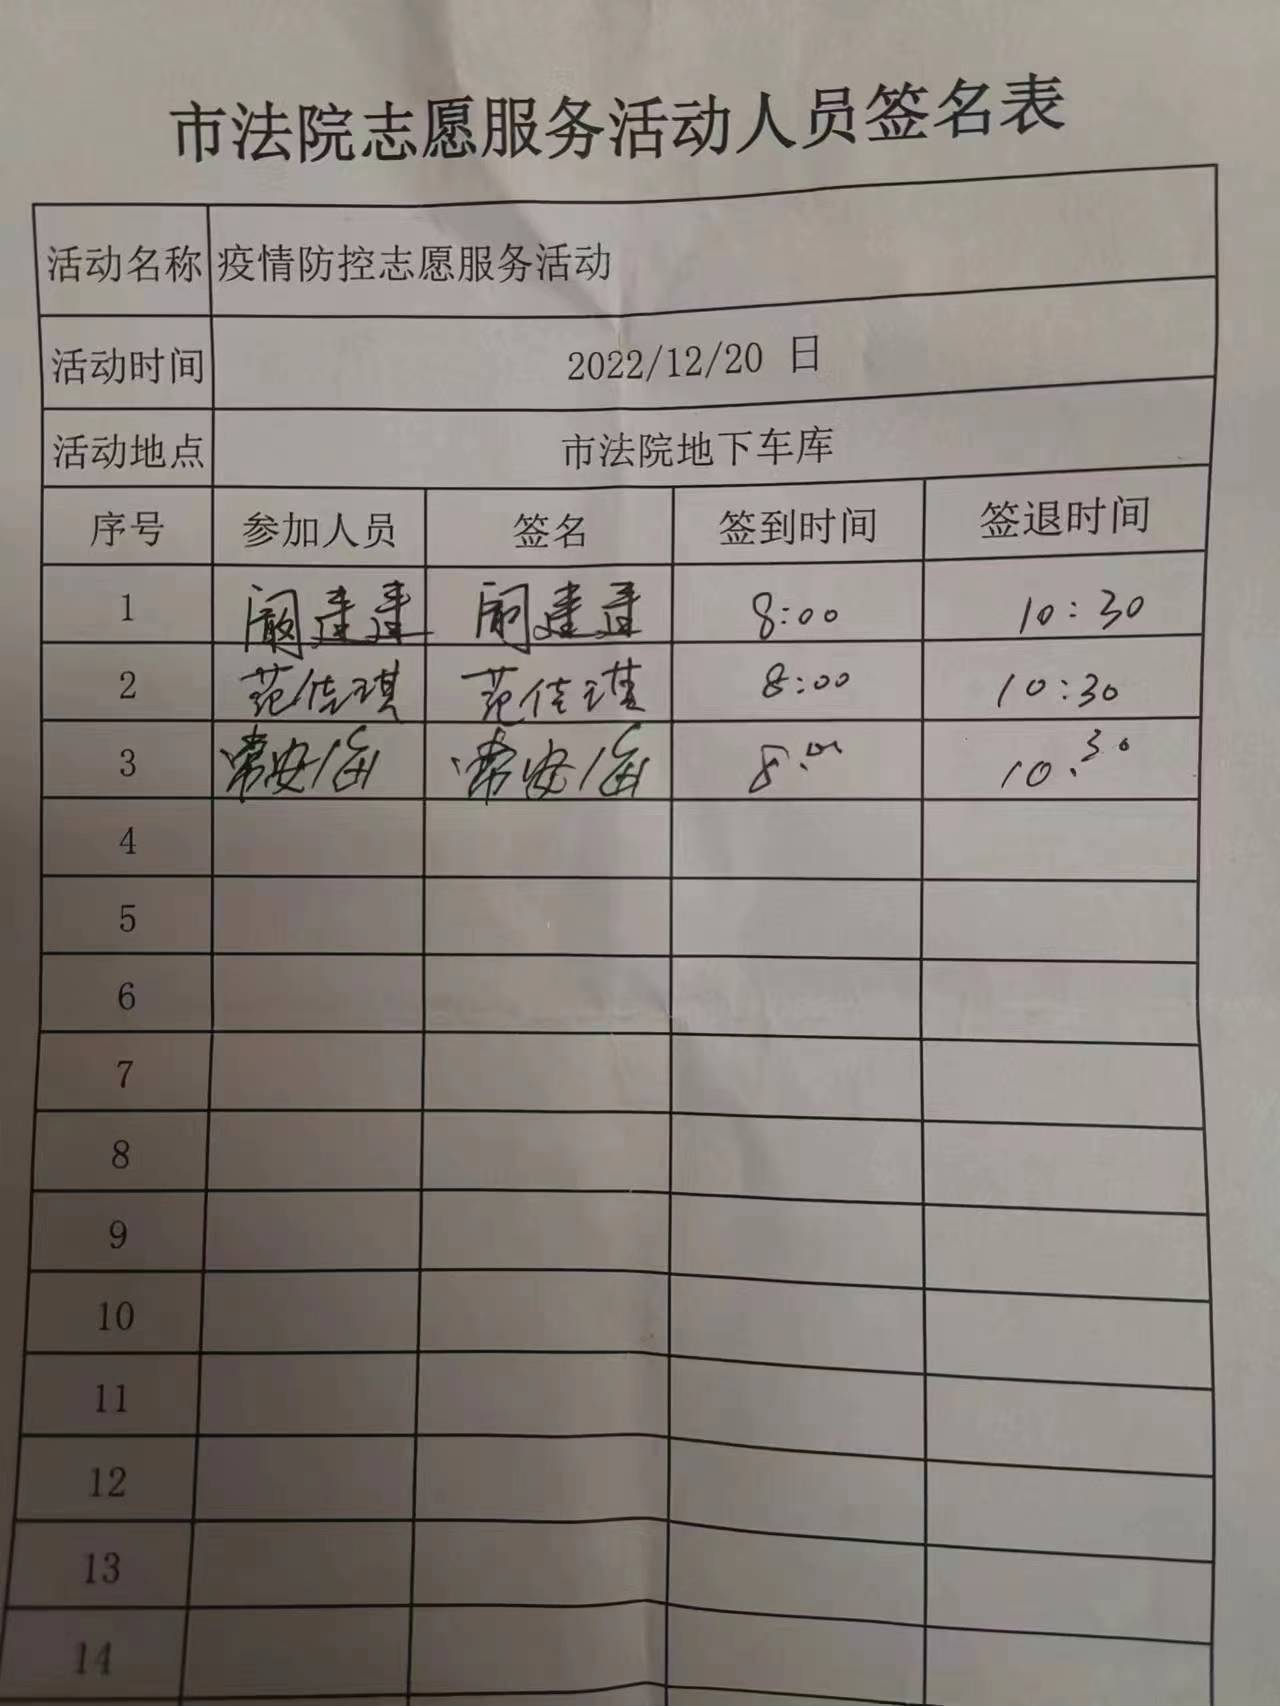 市法院志愿服务活动人员签名表
活动名称 疫情防控志愿服务活动
活动时间 2022/12/20 日
活动地点 市法院地下车库
序号 参加人员 签名 签到时间 签退时间
1 建建 建建 8:00 10:30
2 范佳琪 范佳琪 8:00 10:30
3 常安 常安 8:00 10:30
4
5
6
7
8
9
10
11
12
13
14